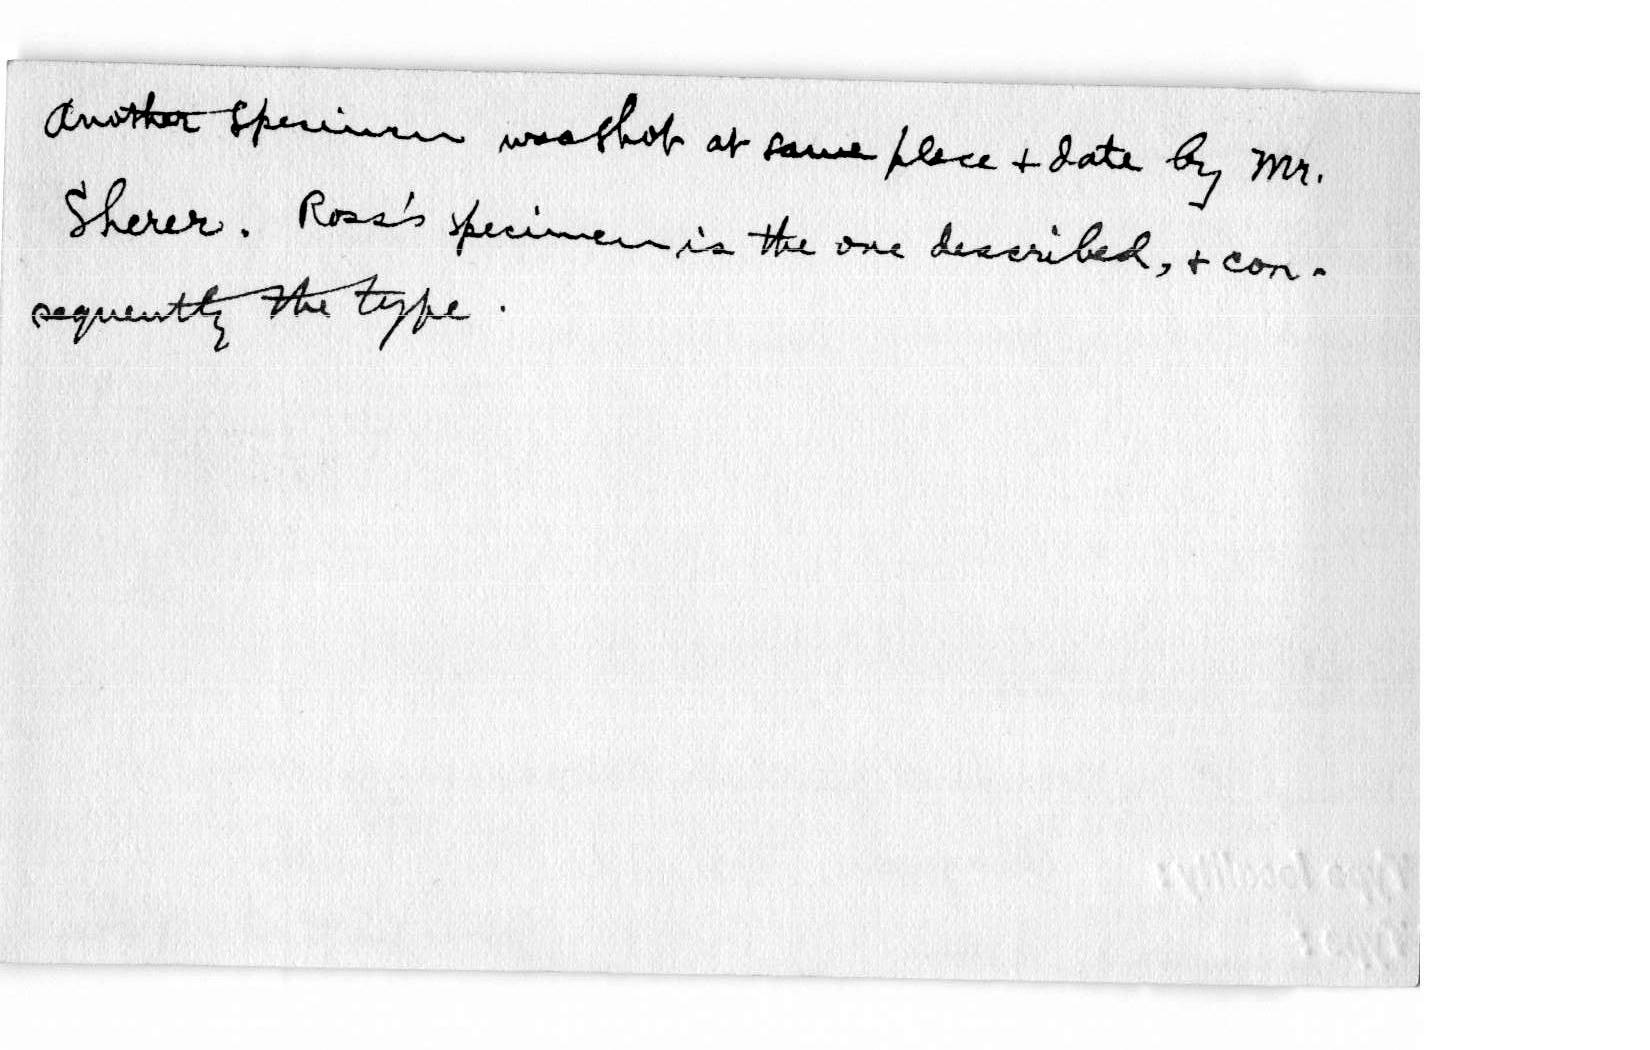 Another specimen was shot at same place + date by Mr.
Sherer. Ross's specimen is the one described, + con-
sequently the type.
Type locality:
Type: